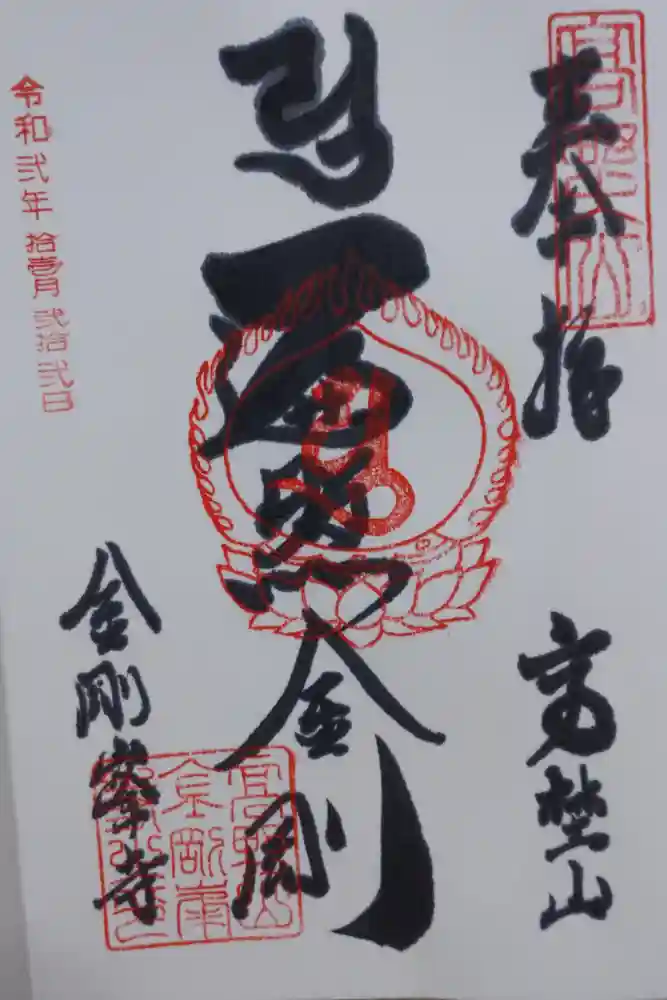 奉拝
高野山
遍照金剛
金剛峯寺
令和弐年拾壱月弐拾弐日
高野山
高野山
金剛峯
寺之印